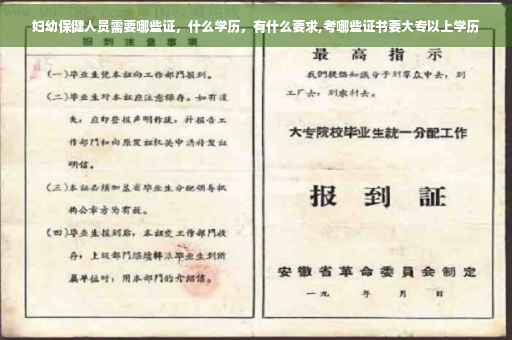 妇幼保健人员需要哪些证，什么学历，有什么要求,考哪些证书要大专以上学历
报到注意事项
(一)毕业生凭本证向工作部门报到。
(二)毕业生对本证应注意保存。如有遗
失，应即登报声明作废，并报告工
作部门和向原发证机关申请补发证
明信。
(三)本证必须加盖省毕业生分配领导机
构公章方为有效。
(四)毕业生报到后，本证交工作部门收
存；上级部门继续转派毕业生到所
属单位时，用本部门的介绍信。
最高指示
我们提倡知识分子到群众中去，到
工厂去，到农村去。
大专院校毕业生统一分配工作
报到证
安徽省革命委员会制定
一九 年 月 日